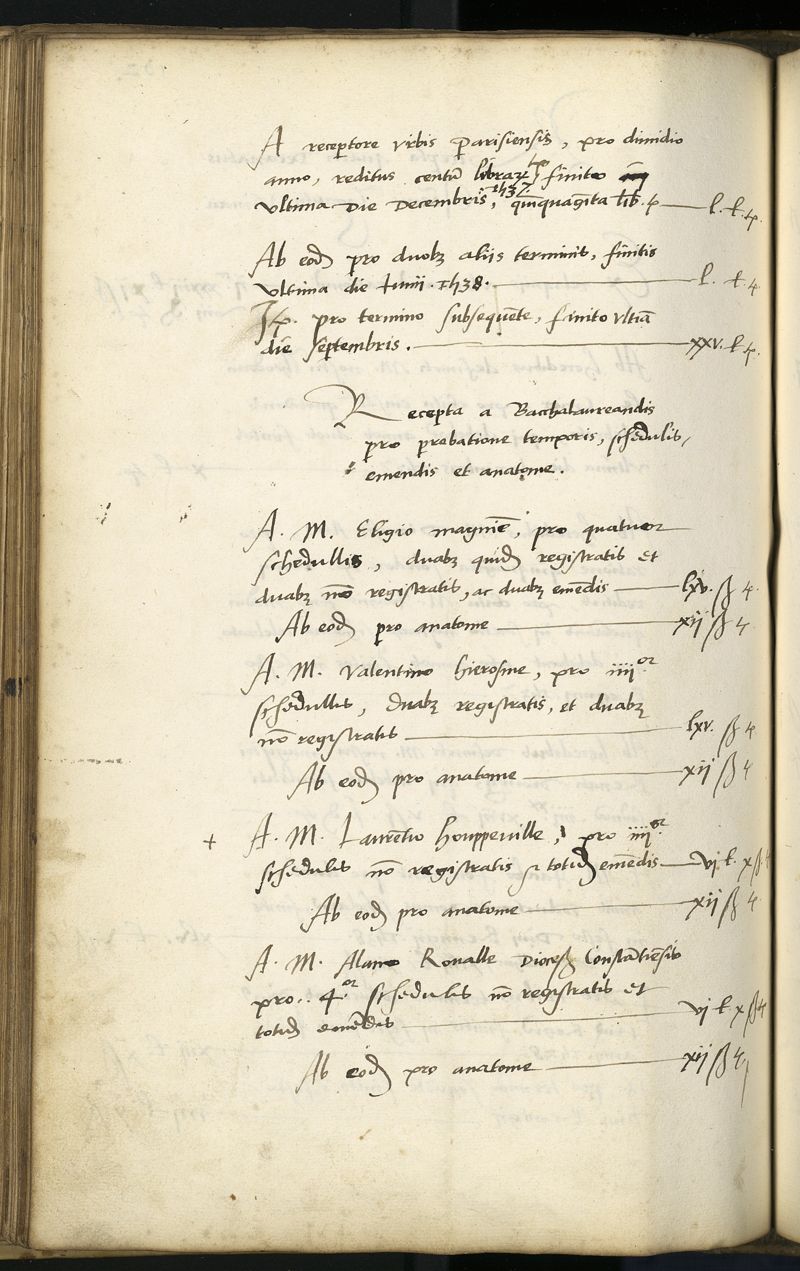 A receptore urbis parisiensis, pro dimidio
anno, reditus centū libraꝝ tꝰ, finito
ultima die Decembris, 1537. quinquagīta lib. p — l. l. p.
Ab eod pro duobꝫ aliis terminis, finitis
ultima die Iunii .1538. — l. l. p
Itē. pro termino subsequēte, finito ultīa
die septembris. — xxv. l. p.
Recepta a Bacchalaureandis
pro probatione temporis, schedulis,
emendis et anatome.
A. M. Eligio magniē, pro quatuor
schedullis, duabꝫ quidē registratis et
duabꝫ nō registratis, ac duabꝫ emēdis — lxv. ß p.
Ab eod pro anatome — xij ß p
A. M. Valentino hierosme, pro iiii.or
schedullis, duabꝫ registratis, et duabꝫ
nō registratis — lxv. ß p
Ab eod pro anatome — xij ß p
+ A. M. Laurētio houppeville, pro iiii.or
schedulis nō registratis et totid emēdis — vj l. x ß p
Ab eod pro anatome — xij ß p
A. M. Alano Roualle Dioces Constātiēsis
pro.. 4.or schedulis nō registratis et
totid emēdis — vj l. x ß p
Ab eod pro anatome — xij ß p